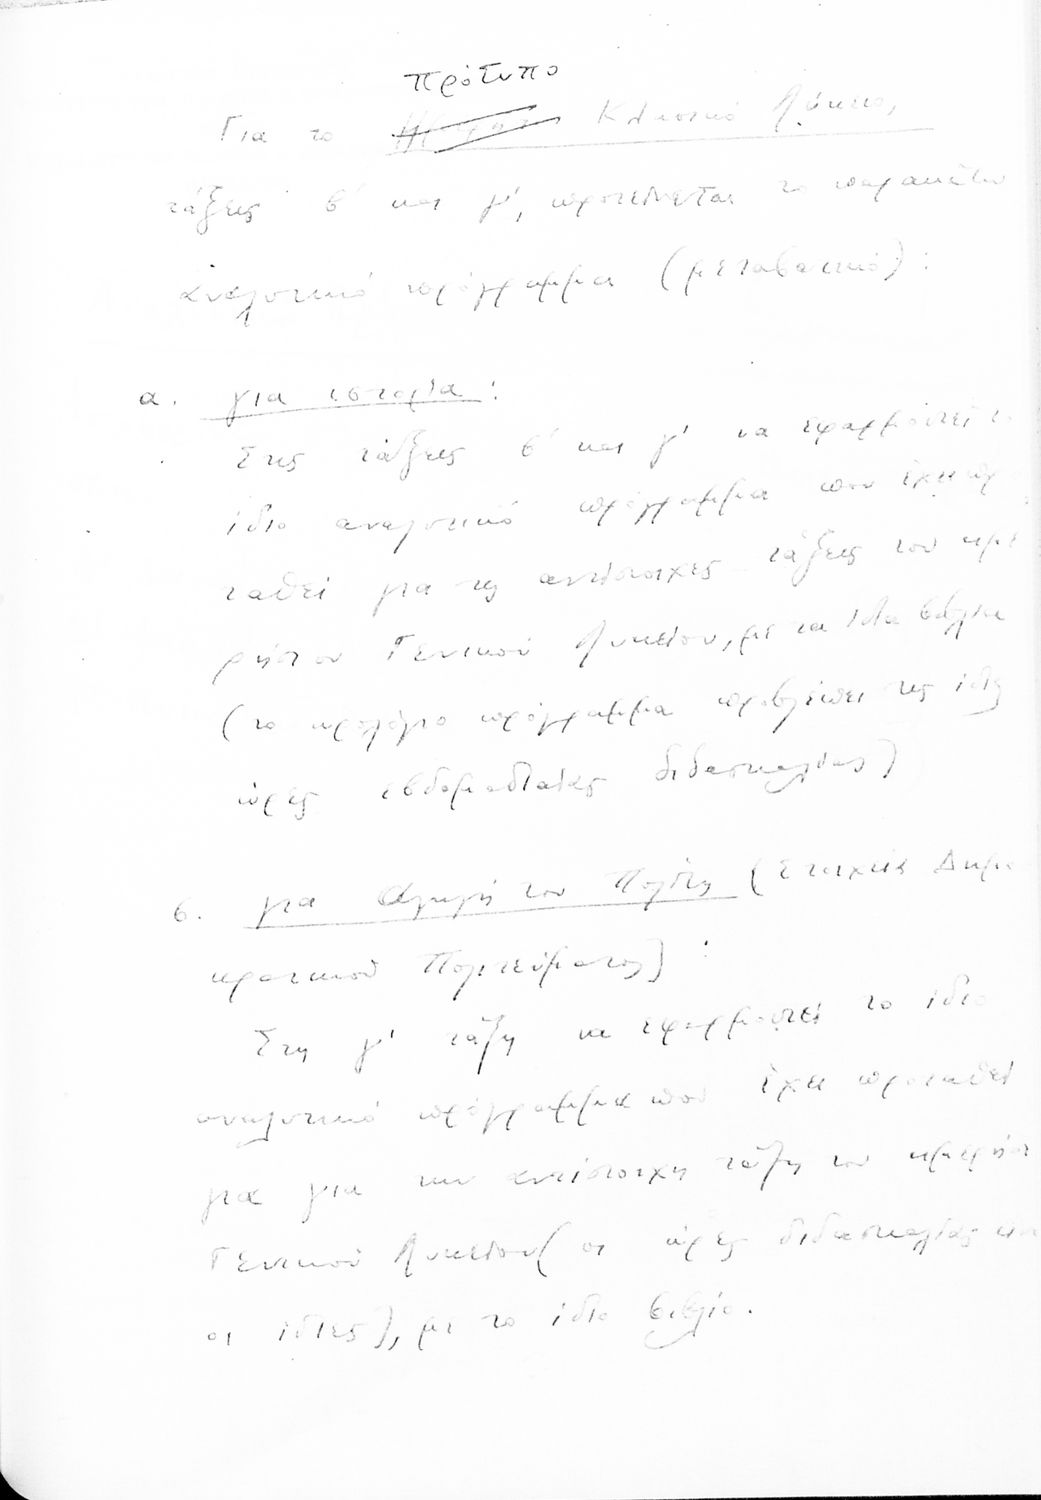 πρότυπο
Για το Κλασσικό Λύκειο,
τάξεις β' και γ', προτείνεται το παρακάτω
αναλυτικό πρόγραμμα (μεταβατικό):
α. για ιστορία:
Στις τάξεις β' και γ' να εφαρμοστεί το
ίδιο αναλυτικό πρόγραμμα που έχει προ
ταθεί για τις αντίστοιχες τάξεις του ημε
ρήσιου Γενικού Λυκείου, με τα ίδια βιβλία
(το ωρολόγιο πρόγραμμα προβλέπει τις ίδιες
ώρες εβδομαδιαίας διδασκαλίας)
β. για Αγωγή του Πολίτη (Στοιχεία Δημο
κρατικού Πολιτεύματος):
Στη γ' τάξη να εφαρμοστεί το ίδιο
αναλυτικό πρόγραμμα που έχει προταθεί
για για την αντίστοιχη τάξη του ημερήσι
Γενικού Λυκείου (οι ώρες διδασκαλίας
οι ίδιες), με το ίδιο βιβλίο.